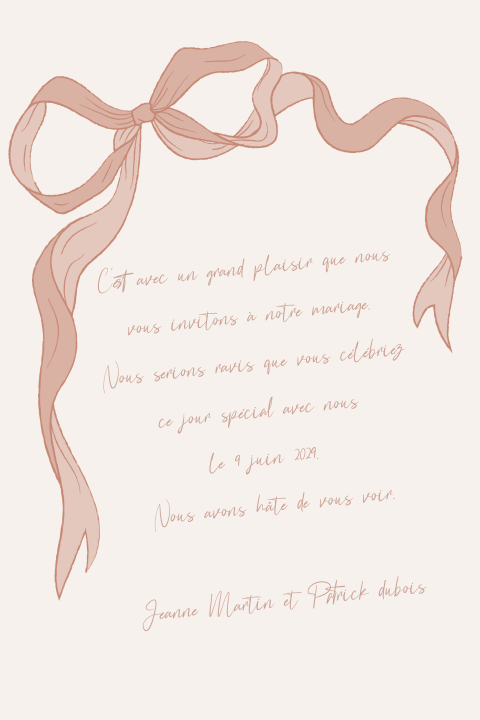 C'est avec un grand plaisir que nous
vous invitons à notre mariage.
Nous serions ravis que vous célébriez
ce jour spécial avec nous
le 9 juin 2029.
Nous avons hâte de vous voir.
Jeanne Martin et Patrick dubois